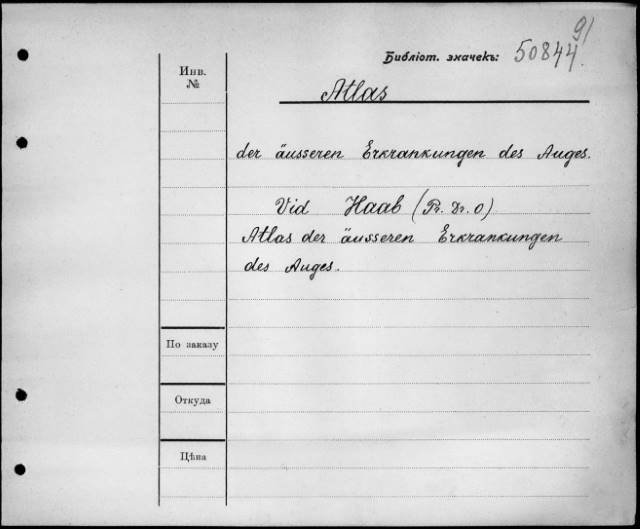 91
Библіот. значекъ: 50844
Инв.
№
Atlas
der äusseren Erkrankungen des Auges.
Vid Haab (Pr. Dr. O)
Atlas der äusseren Erkrankungen
des Auges.
По заказу
Откуда
Цѣна